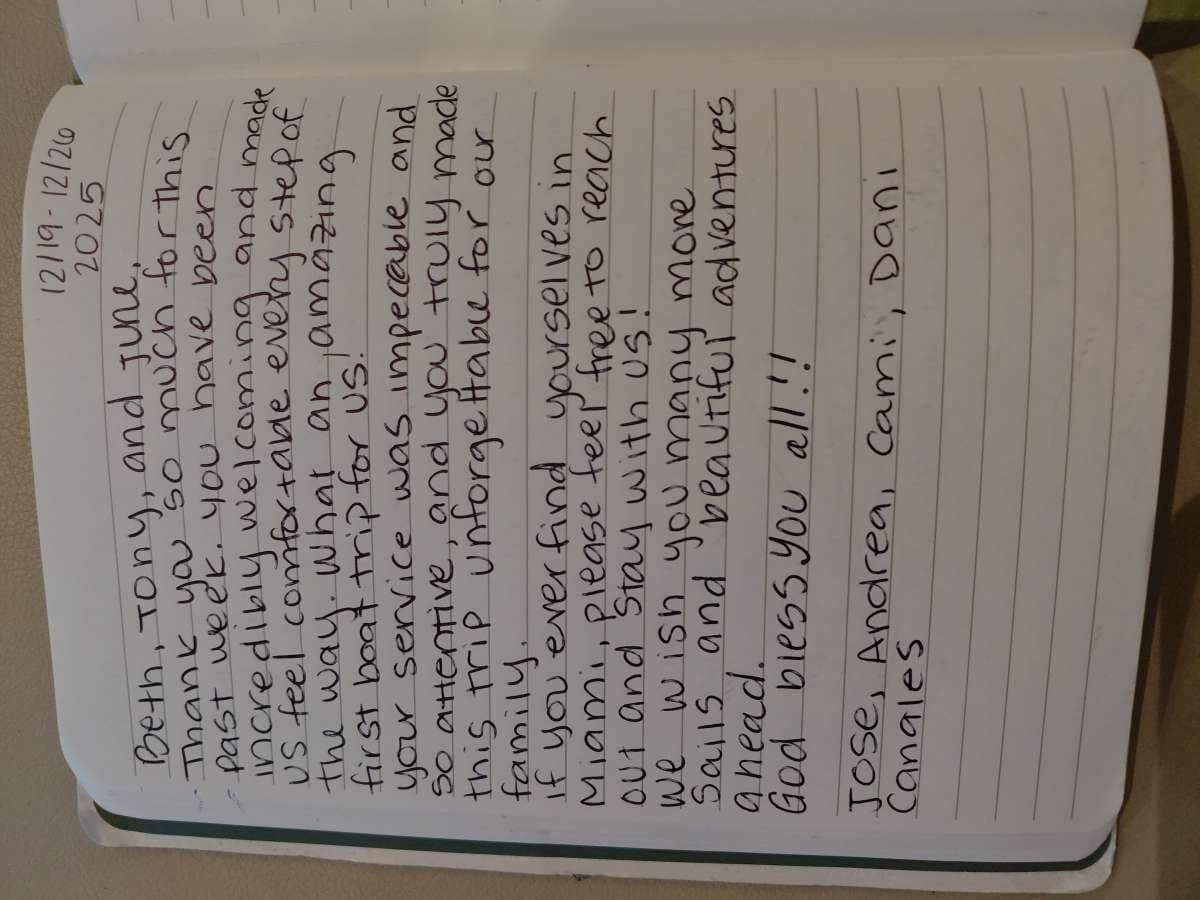 12/19 - 12/26
2025
Beth, Tony, and June,
Thank you so much for this
past week. you have been
incredibly welcoming and made
us feel comfortable every step of
the way. What an amazing
first boat trip for us!
your service was impeccable and
so attentive, and you truly made
this trip unforgettable for our
family.
If you ever find yourselves in
Miami, please feel free to reach
out and stay with us!
We wish you many more
Sails and beautiful adventures
ahead.
God bless you all!!
Jose, Andrea, Cami, Dani
Canales